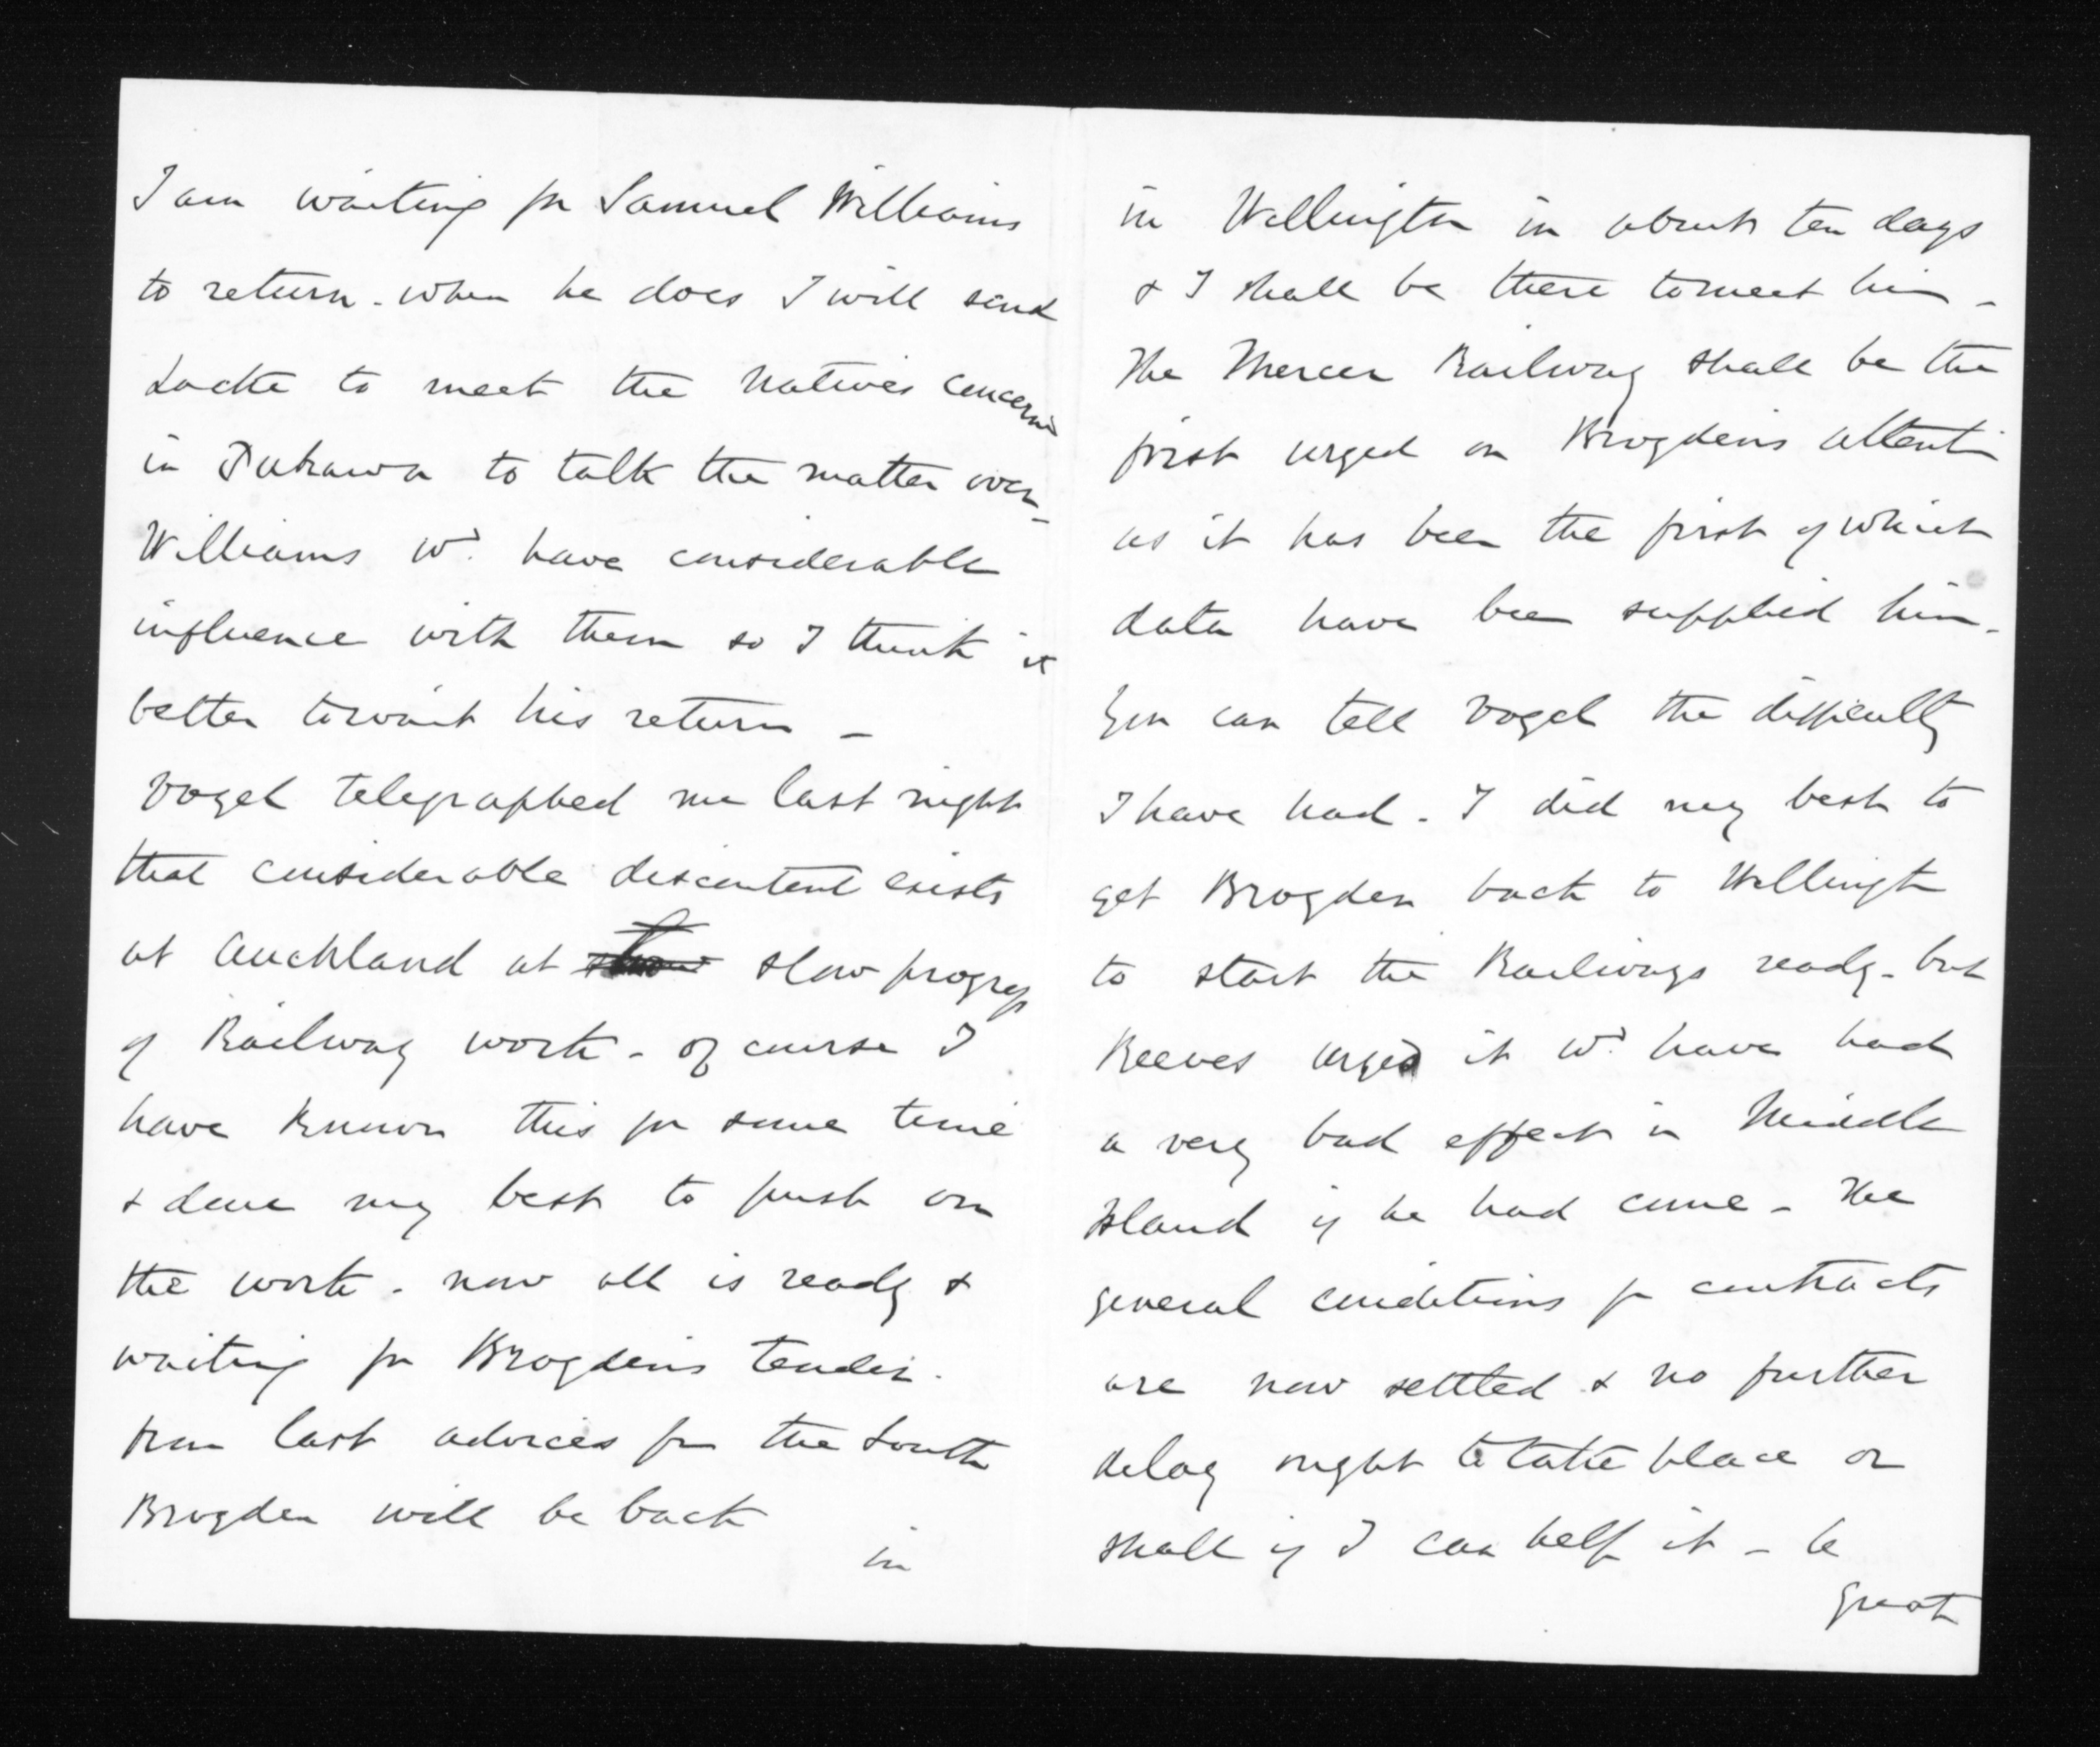 I am waiting for Samuel Williams
to return. when he does I will send
Locke to meet the natives concerned
in Pukawa to talk the matter over_
Williams wd. have considerable
influence with them so I think it
better to wait his return _
Vogel telegraphed me last night
that considerable discontent exists
at Auckland at slow progress
of Railway work - of course I
have known this for some time
& done my best to push on
the work. now all is ready &
waiting for Brogdens tender.
from last advices from the South
Brogden will be back
in
in Wellington in about ten days
& I shall be there to meet him -
The Mercer Railway shall be the
first urged on Brogdens attention
as it has been the first of which
data have been supplied him.
You can tell Vogel the difficulty
I have had. I did my best to
get Brogden back to Wellington
to start the Railways ready - but
Reeves urged it wd. have had
a very bad effect in Middle
Island if he had come - The
general conditions for contracts
are now settled & no further
delay ought to take place or
shall if I can help it - a
great